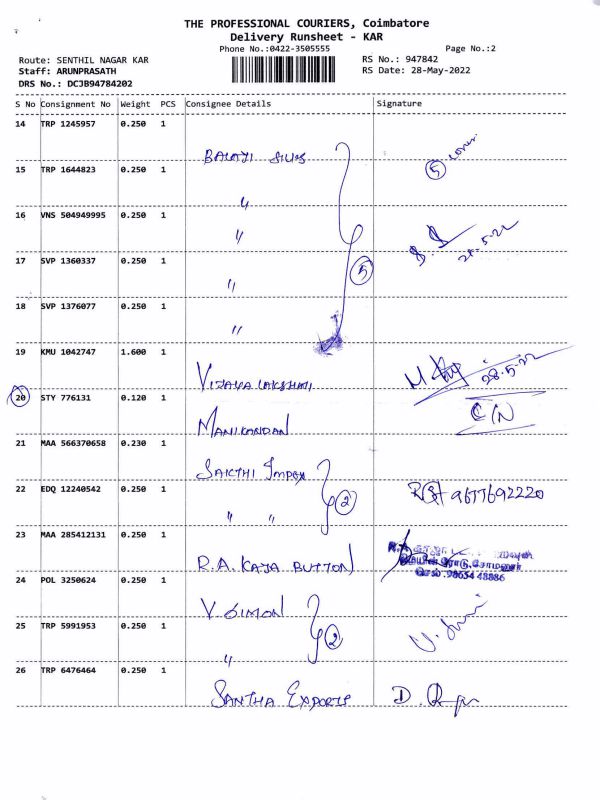 THE PROFESSIONAL COURIERS, Coimbatore
Delivery Runsheet - KAR
Phone No.:0422-3505555 Page No.:2
Route: SENTHIL NAGAR KAR RS No.: 947842
Staff: ARUNPRASATH RS Date: 28-May-2022
DRS No.: DCJB94784202
S No Consignment No Weight PCS Consignee Details Signature
14 TRP 1245957 0.250 1
BALAJI SILKS 5 cover
15 TRP 1644823 0.250 1
"
16 VNS 504949995 0.250 1
" 28-5-22
17 SVP 1360337 0.250 1
" 5
18 SVP 1376077 0.250 1
"
19 KMU 1042747 1.600 1
VIJAYA LAKSHMI 28-5-22
20 STY 776131 0.120 1
MANIKANDAN C/N
21 MAA 566370658 0.230 1
SAKTHI IMPEX
22 EDQ 12240542 0.250 1
" " 2 9677692220
23 MAA 285412131 0.250 1
R.A. KAJA BUTTON
செல் .98654 48886
24 POL 3250624 0.250 1
V. SIMON
25 TRP 5991953 0.250 1
" 2
26 TRP 6476464 0.250 1
SANTHA EXPORTS